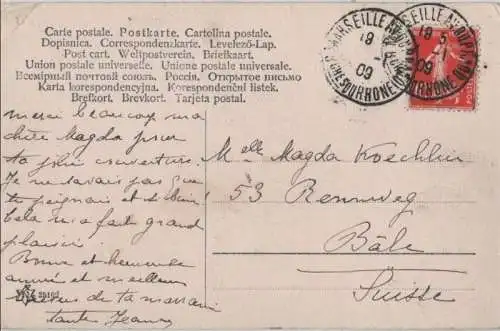 Carte postale. Postkarte. Cartolina postale.
Dopisnica. Correspondenzkarte. Levelező-Lap.
Post cart. Weltpostverein. Briefkaart.
Union postale universelle. Unione postale universale.
Всемірный почтовой союзъ. Россія. Открытое письмо
Karta korespondencyjna. Korespondenční listek.
Brefkort. Brevkort. Tarjeta postal.
merci beaucoup ma
chère Magda pour
ta jolie couverture.
Je ne savais pas que
tu peignais et si bien
Cela m'a fait grand
plaisir.
Bonne et heureuse
année et meilleurs
de ta marraine
tante Jeanne
Melle Magda Koechlin
53 Rennweg
Bâle
Suisse
MARSEILLE
18
09
MARSEILLE
18
09